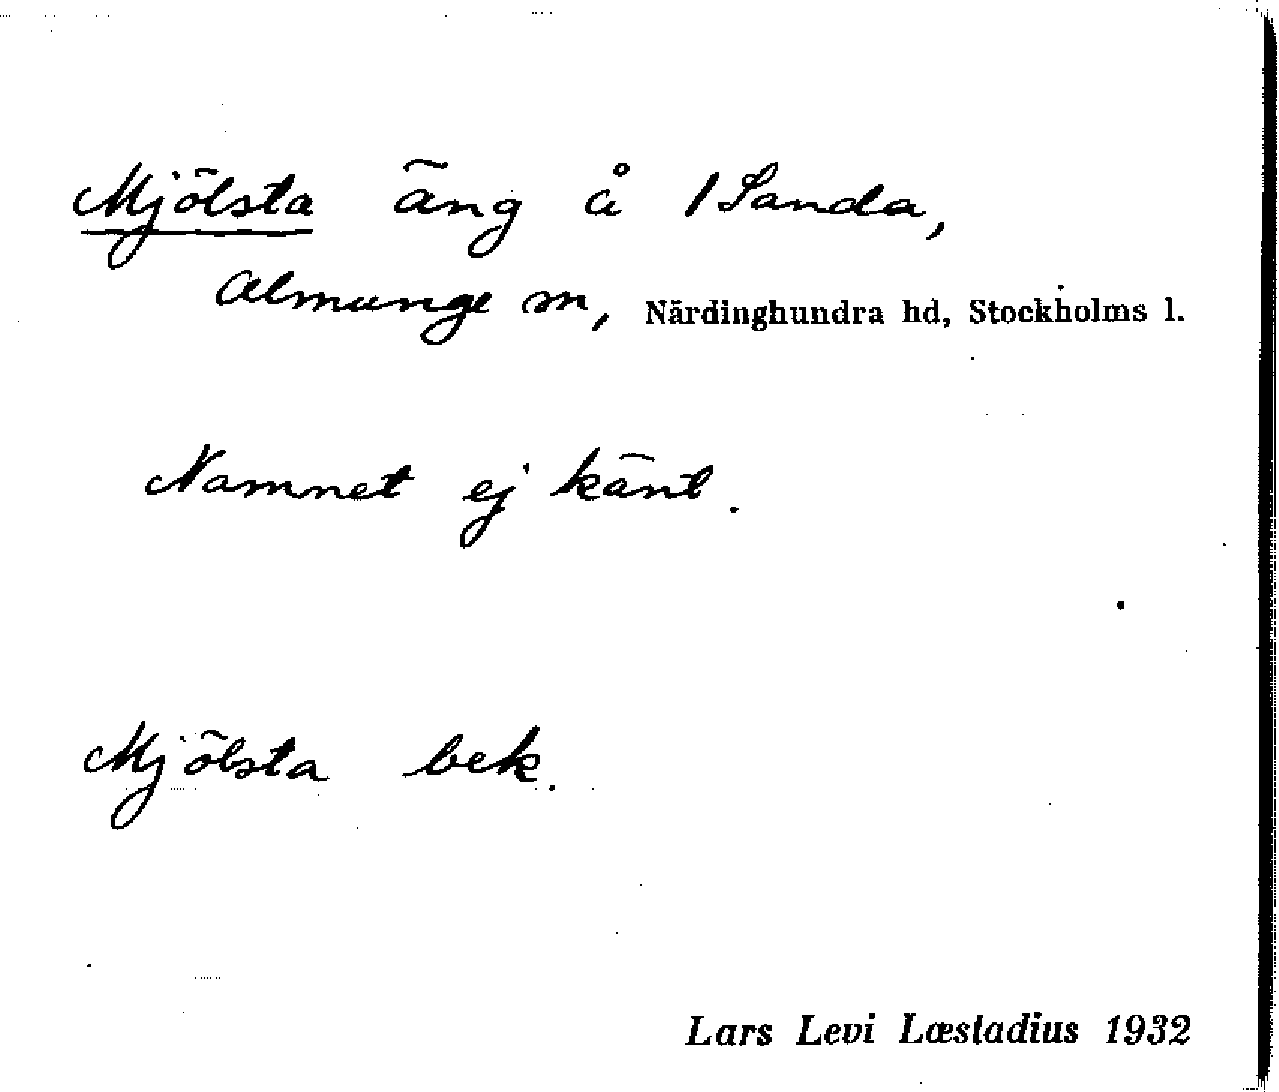 Mjölsta äng å 1 Sanda,
Almunge sn, Närdinghundra hd, Stockholms l.
Namnet ej känt.
Mjölsta bek.
Lars Levi Læstadius 1932